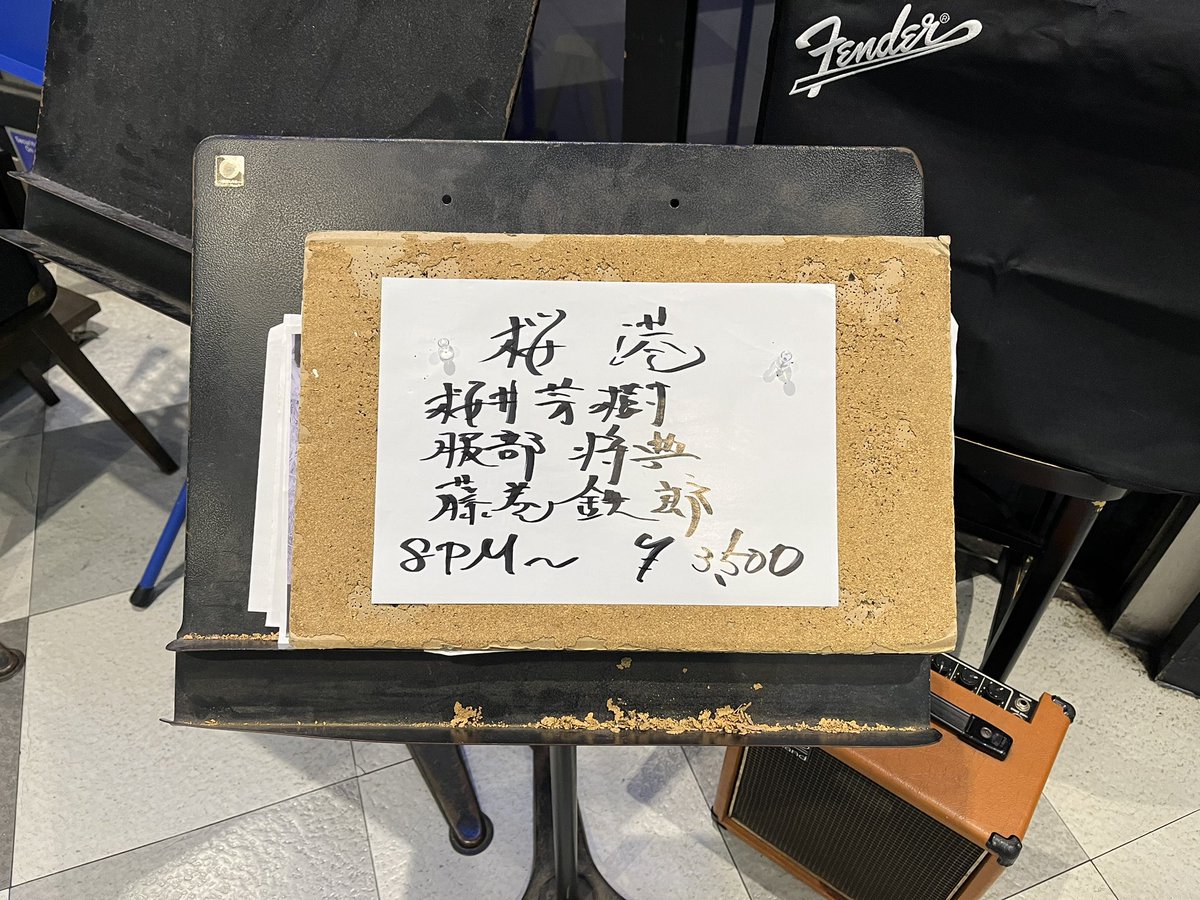 Fender®
桜港
桜井芳樹
服部将典
藤巻鉄郎
8PM～ ¥3,500